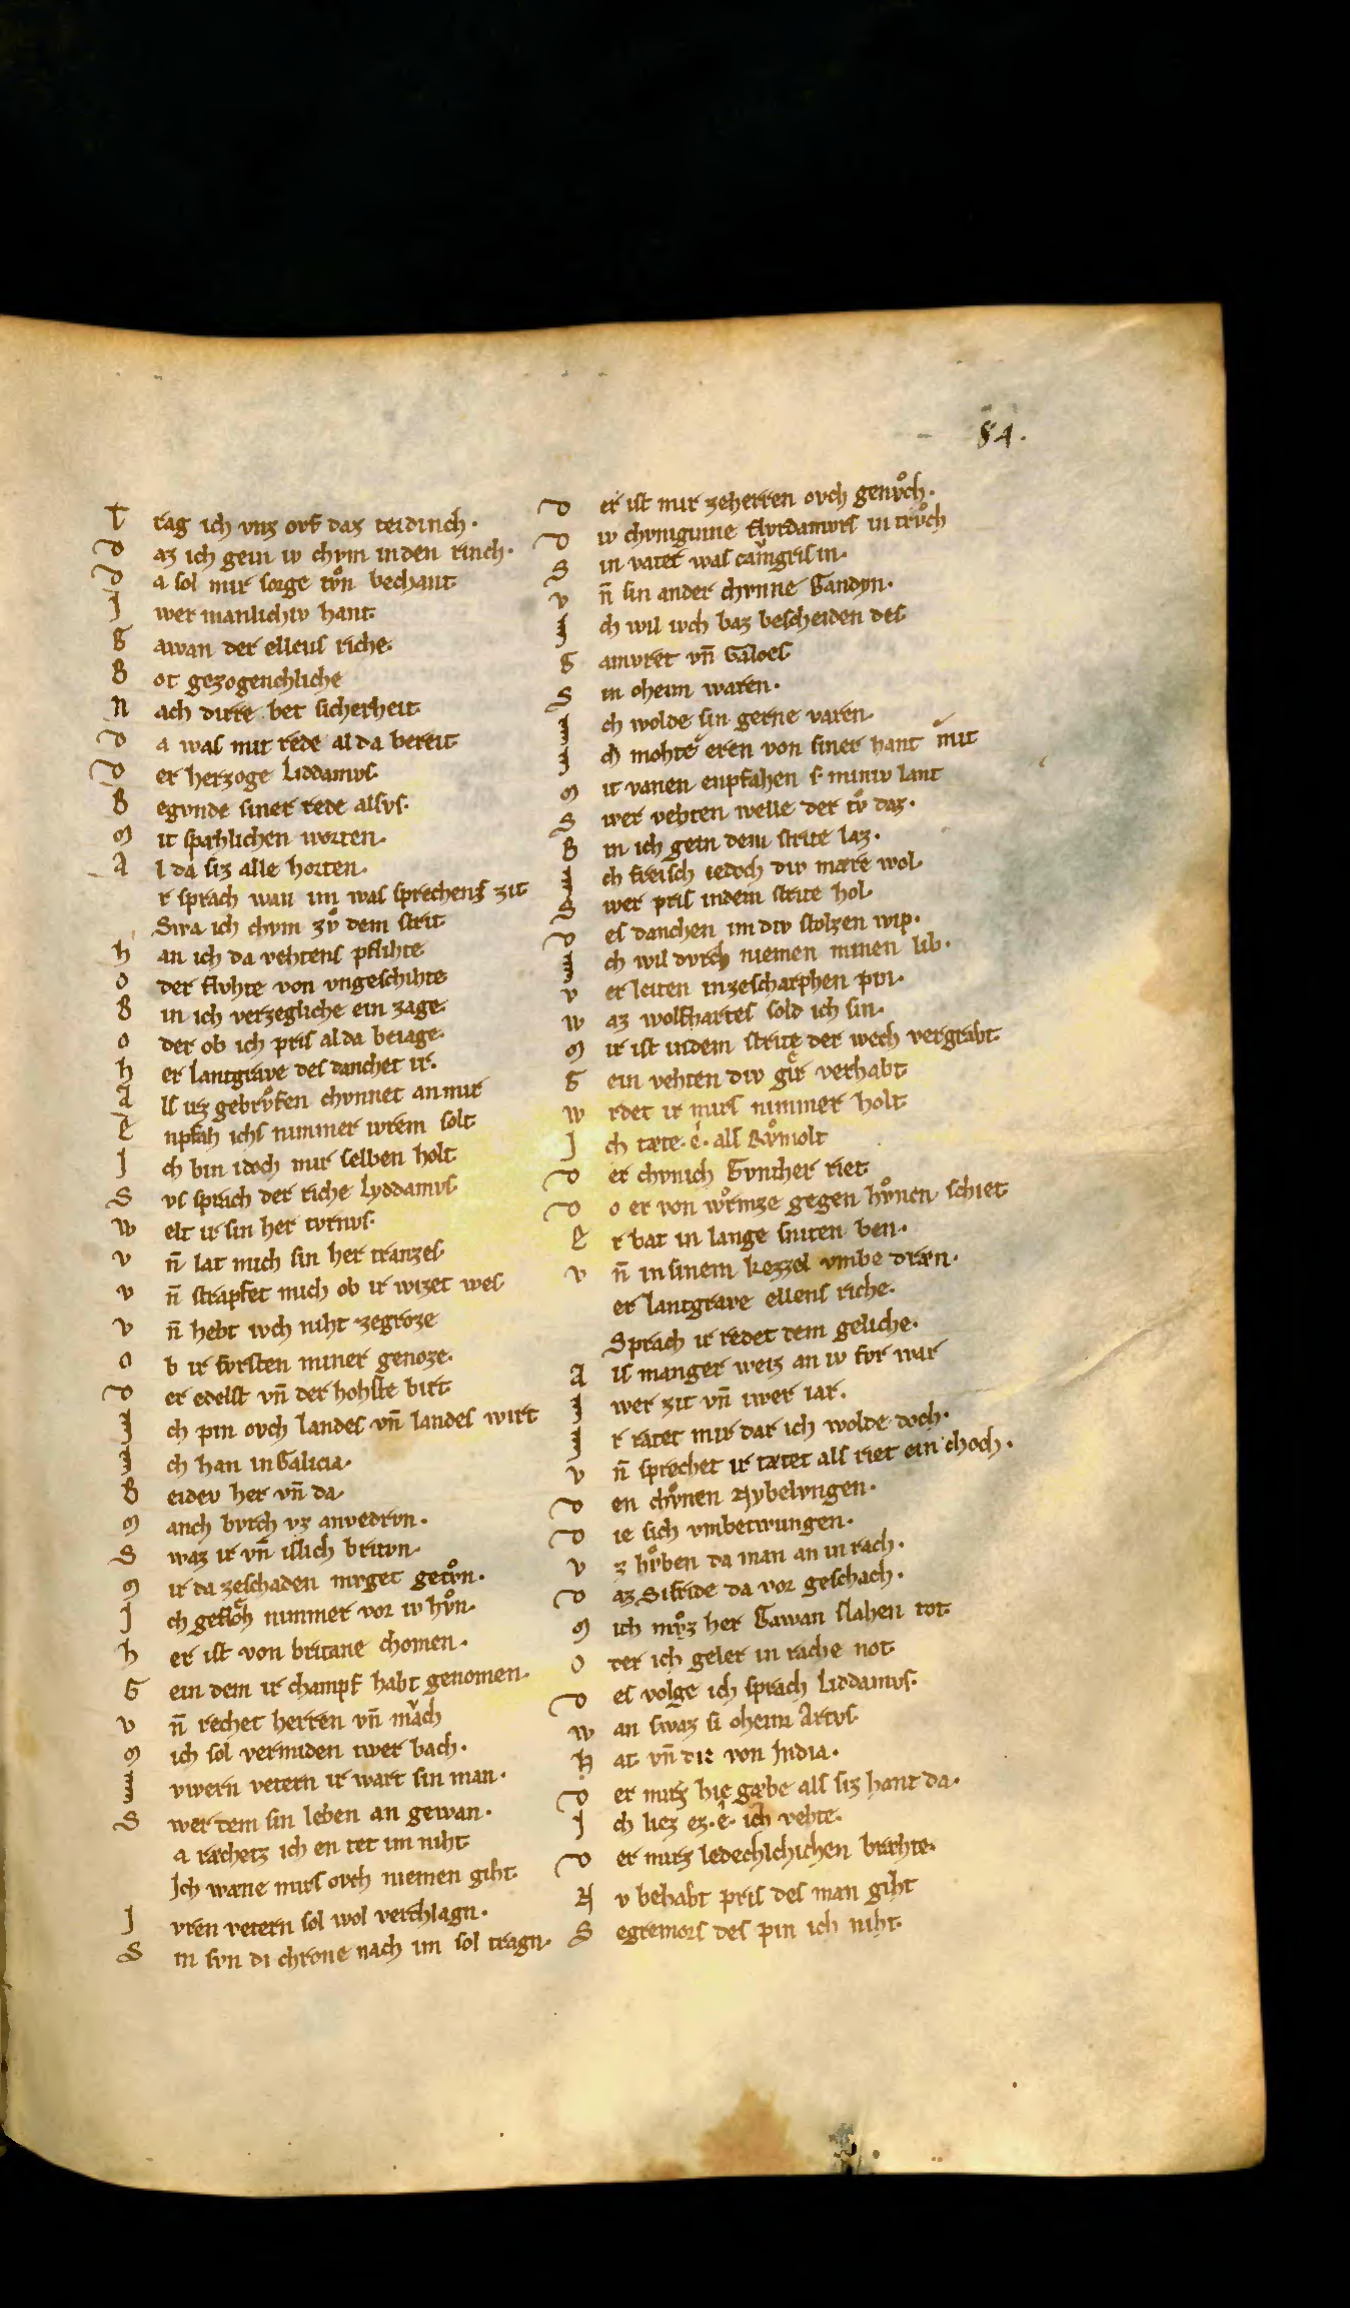 84.
T rag ich vnz ovf daz teidinch.
D az ich gein iv chvm in den rinch.
D a sol mir sorge tvͦn bechant
J wer manlichiv hant
G awan der ellens riche.
B ot gezogenchliche
N ach dirre bet sicherheit
D a was mit rede al da bereit
D er herzoge Liddamvs.
B egvnde siner rede alsvs.
M it spæhlichen worten.
A l da siz alle horten.
r sprach wan im was sprechens zit
Swa ich chvm zvͦ dem strit
H an ich da vehtens pflihte
O der flvhte von vngeschihte
B in ich verzegliche ein zage.
O der ob ich pris al da beiage.
H er lantgrave des danchet ir.
A ls irz gebrvͦfen chvnnet an mir
E npfah ichs nimmer iwrem solt
J ch bin idoch mir selben holt
S vs sprach der riche Lyddamvs
W elt ir sin her tvrnvs.
V n̄ lat mich sin her tranzes.
V n̄ strapfet mich ob ir wizet wes
V n̄ hebt ivch niht zegroze
O b ir fvrsten miner genoze.
D er edelst vn̄ der hohste birt
J ch pin ovch landes vn̄ landes wirt
J ch han in Galicia.
B eidev her vn̄ da
M anch bvrch vz an vedrvn.
S waz ir vn̄ islich britvn.
M ir da zeschaden mvget getvͦn.
J ch gefloͤh nimmer vor iv hvͦn.
H er ist von britane chomen.
G ein dem ir champf habt genomen.
V n̄ rechet herren vn̄ mach
M ich sol vermiden iwer bach.
J vwern vetern ir wart sin man.
S wer dem sin leben an gewan.
a ræchetz ich en tet im niht
Jch wæne mirs ovch niemen giht
J vren vetern sol wol verchlagn.
S in svn di chrone nach im sol tragn.
D er ist mir zeherren ovch genvͦch.
D iv chvniginne flvrdamvrs in trvͦch
S in vater was camgrisin.
V n̄ sin ander chvnne Gandyn.
J ch wil ivch baz bescheiden des
G amvret vn̄ Galoes
S in oheim waren.
J ch wolde sin gerne varen.
J ch mohte eren von siner hant mit
M it vanen enpfahen miniv lant
S wer vehten welle der tvͦ daz.
B in ich gein dem strite laz.
J ch freisch iedoch div mære wol
S wer pris in dem strite hol
D es danchen im div stolzen wip.
J ch wil dvrch niemen minen lib.
V er leiten in zescharphen pin.
W az wolfhartes sold ich sin.
M ir ist in dem strite der wech vergrabt
G ein vehten div gir verhabt
W rdet ir mirs nimmer holt
J ch tæte. e. als Rvͦmolt
D er chvnich Gvnther riet
D o er von wͦrmze gegen hvͦnen schiet
E r bat in lange sniten ben.
V n̄ in sinem kezzel vmbe dræn.
er lantgrave ellens riche.
Sprach ir redet dem geliche.
A ls manger weiz an iv fvr war
J wer zit vn̄ iwer iar.
J r ratet mir dar ich wolde doch.
V n̄ sprechet ir tætet als riet ein choch.
D en chvͦnen Nybelvngen.
D ie sich vmbetwungen.
V z hvͦben da man an in rach.
D az Sifride da vor geschach.
M ich mvͦz her Gawan slahen tot
O der ich geler in rache not
D es volge ich sprach Liddamvs.
W an swaz si oheim Artvs
H at vn̄ die von India.
D er mirz hie gæbe als siz hant da.
J ch liez ez. e. ich vehte.
D er mirz ledechlchichen bræhte.
N v behabt pris des man giht
S egremors des pin ich niht.